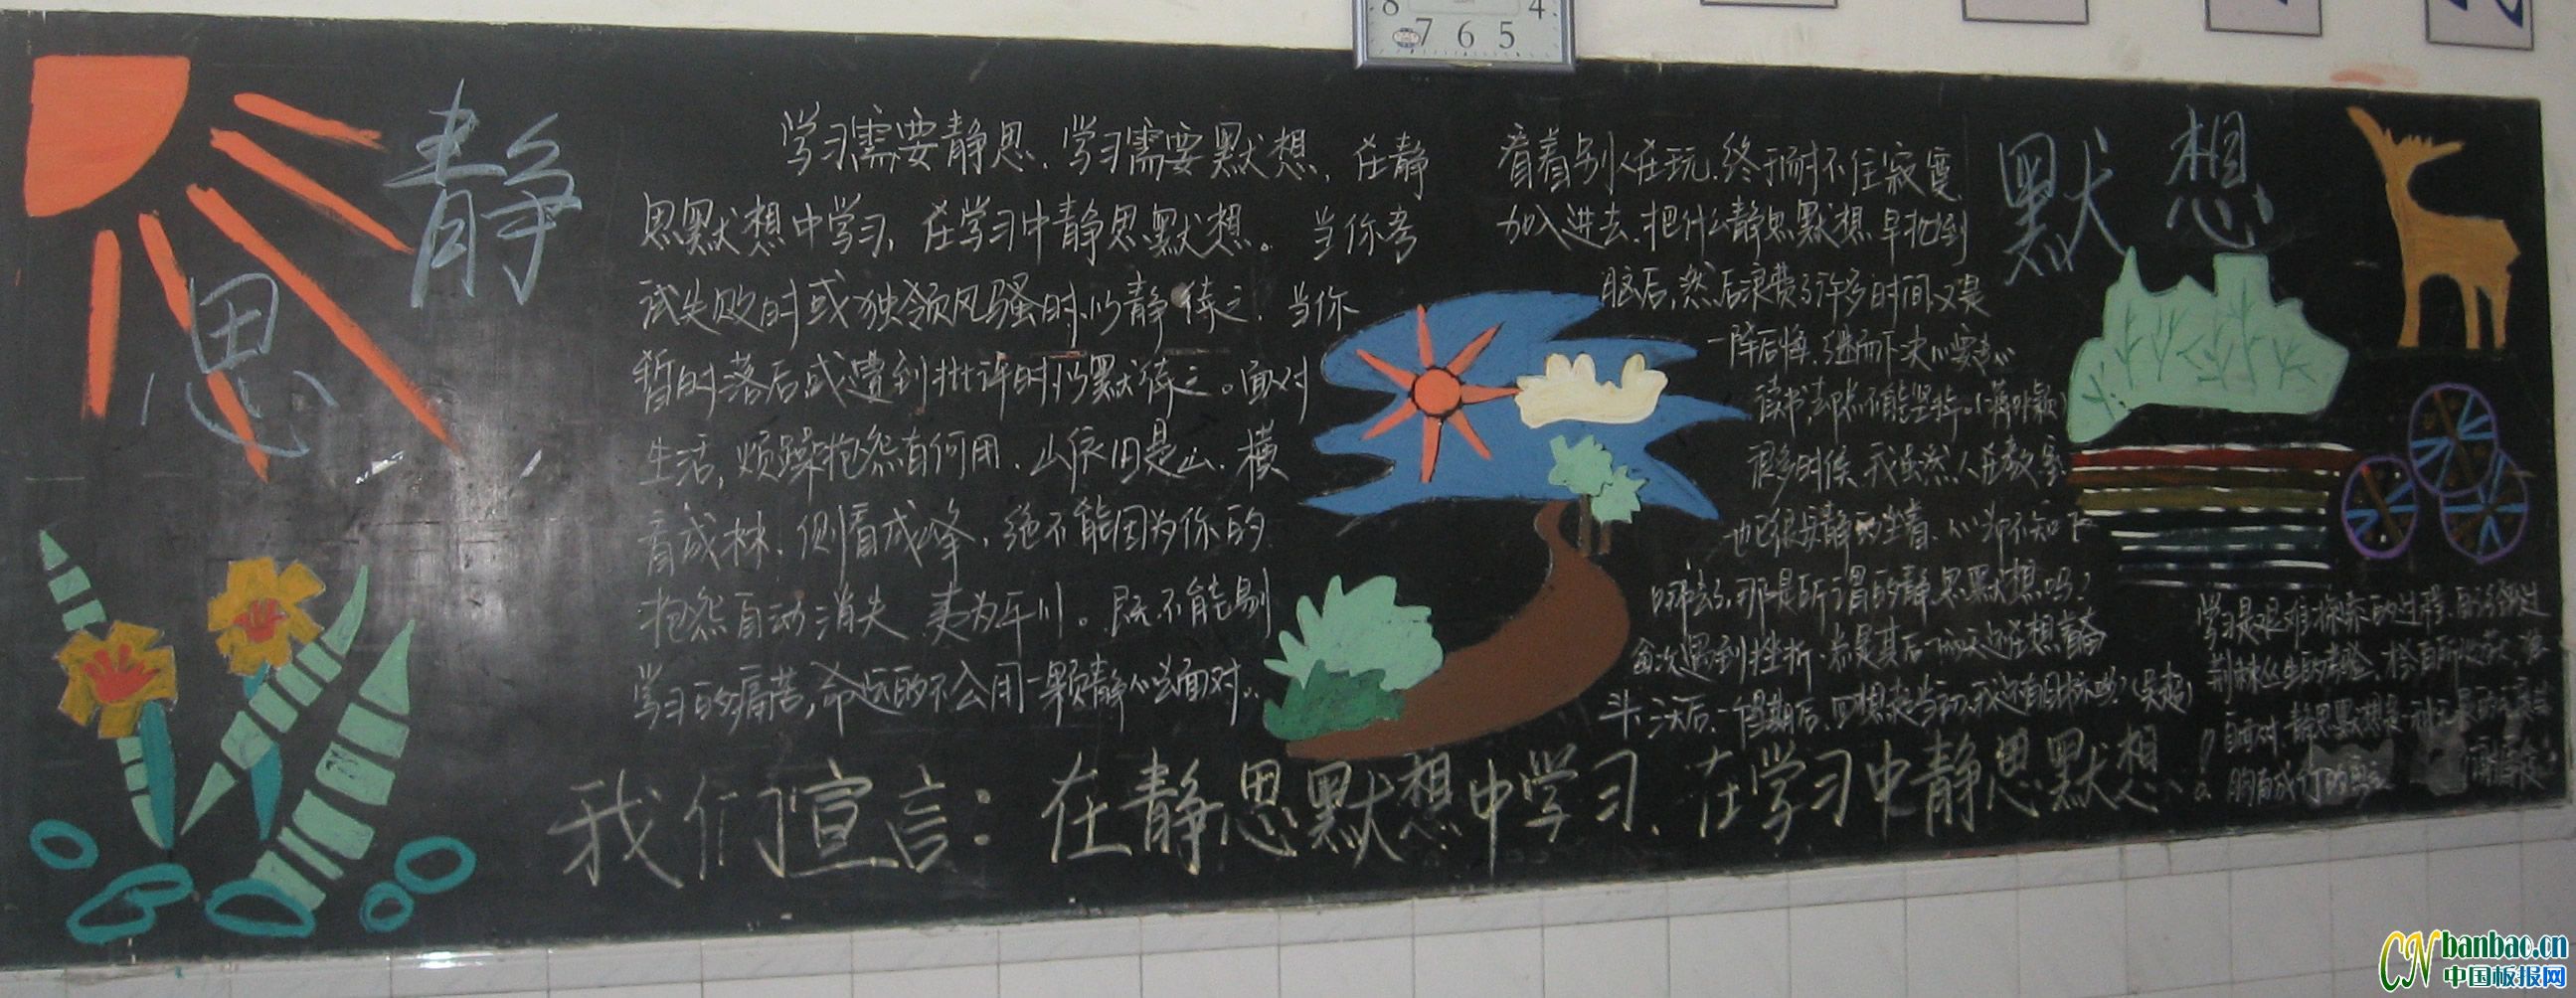 8 7 6 5 4
静思
默想
学习需要静思，学习需要默想，在静
思默想中学习，在学习中静思默想。当你考
试失败时或独领风骚时，以静待之，当你
暂时落后或遭到批评时仍默待之。面对
生活，烦躁抱怨有何用，山依旧是山，横
看成林，侧看成峰，绝不能因为你的
抱怨自动消失，夷为平川。既不能剔
学习的痛苦，命运的不公用一颗静心去面对。
看着别人在玩，终于耐不住寂寞
加入进去，把什么静思默想早抛到
脑后，然后浪费了许多时间又是
一阵后悔，继而下决心要专心
读书，却总不能坚持。
很多时候，我虽然人在教室
也已很安静的坐着，心却不知下
哪去了，那是所谓的静思默想吗？
每次遇到挫折，总是其后一两天还在想着奋
斗，三天后，一个星期后，回想起当初，我还有目标吗？
学习是艰难探索的过程，
荆棘丛生的考验，
面对，静思默想是一种无畏的
胸有成竹的
我们宣言：在静思默想中学习，在学习中静思默想！
CN banbao.cn
中国板报网